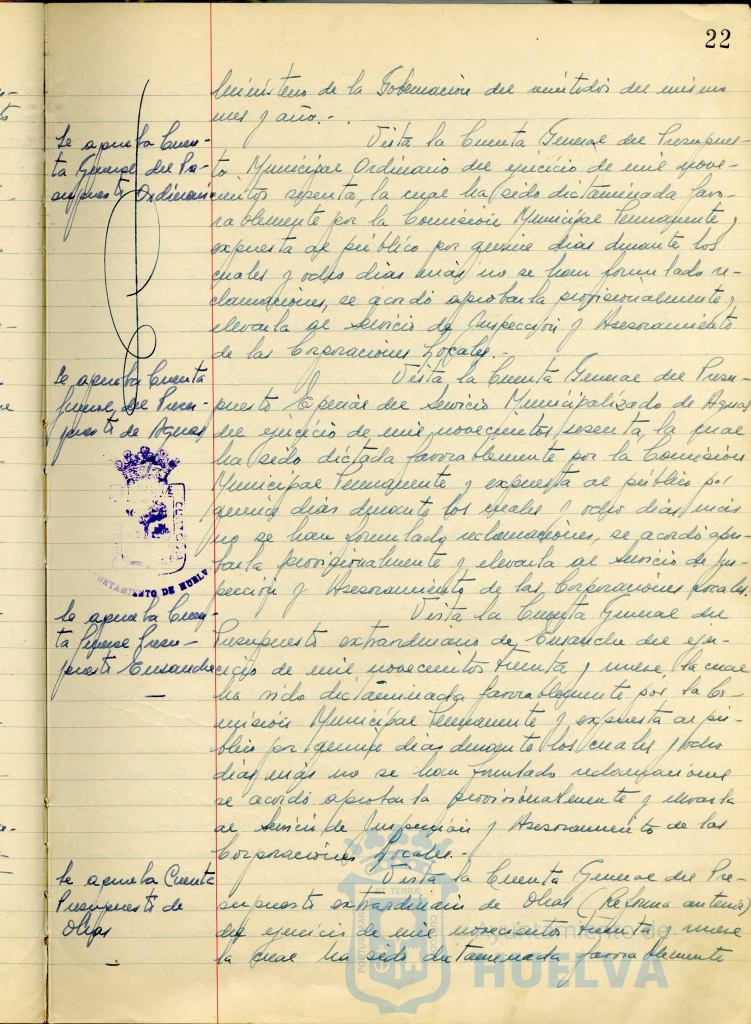 22
Ministerio de la Gobernación del veintidos del mismo
mes y año.-
Se aprueba Cuen-
ta General del Pre-
supuesto Ordinario
Vista la Cuenta General del Presupues-
to Municipal Ordinario del ejercicio de mil nove-
cientos sesenta, la cual ha sido dictaminada favo-
rablemente por la Comisión Municipal Permanente y
expuesta al público por quince días durante los
cuales y ocho días más no se han formulado re-
clamaciones, se acordó aprobarla provisionalmente y
elevarla al Servicio de Inspección y Asesoramiento
de las Corporaciones Locales.-
Se aprueba Cuenta
General del Presu-
puesto de Aguas
Vista la Cuenta General del Presu-
puesto Especial del Servicio Municipalizado de Aguas
del ejercicio de mil novecientos sesenta, la cual
ha sido dictada favorablemente por la Comisión
Municipal Permanente y expuesta al público por
quince días durante los cuales y ocho días más
no se han formulado reclamaciones, se acordó apro-
barla provisionalmente y elevarla al Servicio de Ins-
pección y Asesoramiento de las Corporaciones Locales.
AYUNTAMIENTO DE HUELVA
Se aprueba Cuen-
ta General Presu-
puesto Ensanche
Vista la Cuenta General del
Presupuesto extraordinario de Ensanche del ejer-
cicio de mil novecientos treinta y nueve, la cual
ha sido dictaminada favorablemente por la Co-
misión Municipal Permanente y expuesta al pú-
blico por quince días durante los cuales y ocho
días más no se han formulado reclamaciones
se acordó aprobarla provisionalmente y elevarla
al Servicio de Inspección y Asesoramiento de las
Corporaciones Locales.-
Se aprueba Cuenta
Presupuesto de
Obras
Vista la Cuenta General del Pre-
supuesto extraordinario de Obras (Reforma anterior)
del ejercicio de mil novecientos treinta y nueve
la cual ha sido dictaminada favorablemente
Ayuntamiento de
HUELVA